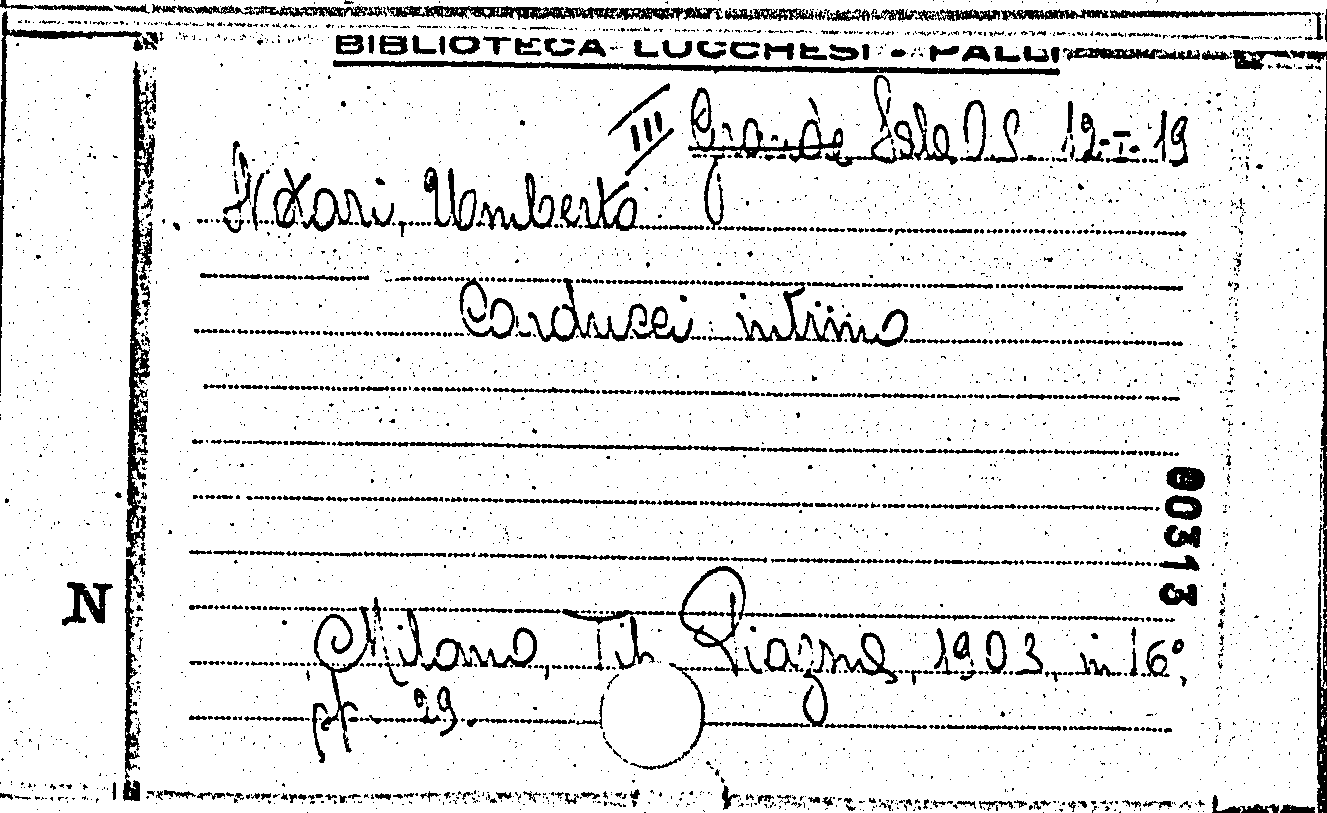 BIBLIOTECA LUCCHESI - PALLI
III Grande Sala D.S. 12-I-19
Notari, Umberto
Carducci intimo
00313
N
Milano, Tip. 1903, in 16°,
pp. 29.